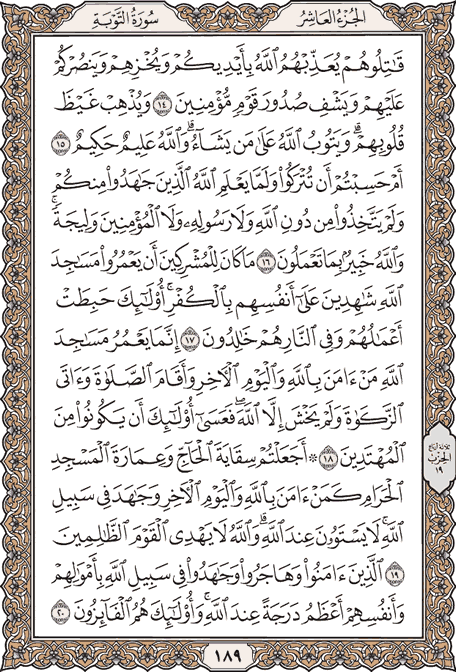 الجُزْءُ العَاشِرُ
سُورَةُ التَّوْبَةِ
قَٰتِلُوهُمْ يُعَذِّبْهُمُ ٱللَّهُ بِأَيْدِيكُمْ وَيُخْزِهِمْ وَيَنصُرْكُمْ
عَلَيْهِمْ وَيَشْفِ صُدُورَ قَوْمٍ مُّؤْمِنِينَ ١٤ وَيُذْهِبْ غَيْظَ
قُلُوبِهِمْ ۗ وَيَتُوبُ ٱللَّهُ عَلَىٰ مَن يَشَآءُ ۗ وَٱللَّهُ عَلِيمٌ حَكِيمٌ ١٥
أَمْ حَسِبْتُمْ أَن تُتْرَكُوا۟ وَلَمَّا يَعْلَمِ ٱللَّهُ ٱلَّذِينَ جَٰهَدُوا۟ مِنكُمْ
وَلَمْ يَتَّخِذُوا۟ مِن دُونِ ٱللَّهِ وَلَا رَسُولِهِۦ وَلَا ٱلْمُؤْمِنِينَ وَلِيجَةً ۚ
وَٱللَّهُ خَبِيرٌۢ بِمَا تَعْمَلُونَ ١٦ مَا كَانَ لِلْمُشْرِكِينَ أَن يَعْمُرُوا۟ مَسَٰجِدَ
ٱللَّهِ شَٰهِدِينَ عَلَىٰٓ أَنفُسِهِم بِٱلْكُفْرِ ۚ أُو۟لَٰٓئِكَ حَبِطَتْ
أَعْمَٰلُهُمْ وَفِى ٱلنَّارِ هُمْ خَٰلِدُونَ ١٧ إِنَّمَا يَعْمُرُ مَسَٰجِدَ
ٱللَّهِ مَنْ ءَامَنَ بِٱللَّهِ وَٱلْيَوْمِ ٱلْءَاخِرِ وَأَقَامَ ٱلصَّلَوٰةَ وَءَاتَى
ٱلزَّكَوٰةَ وَلَمْ يَخْشَ إِلَّا ٱللَّهَ ۖ فَعَسَىٰٓ أُو۟لَٰٓئِكَ أَن يَكُونُوا۟ مِنَ
ٱلْمُهْتَدِينَ ١٨ ۞ أَجَعَلْتُمْ سِقَايَةَ ٱلْحَآجِّ وَعِمَارَةَ ٱلْمَسْجِدِ
ٱلْحَرَامِ كَمَنْ ءَامَنَ بِٱللَّهِ وَٱلْيَوْمِ ٱلْءَاخِرِ وَجَٰهَدَ فِى سَبِيلِ
ٱللَّهِ ۚ لَا يَسْتَوُۥنَ عِندَ ٱللَّهِ ۗ وَٱللَّهُ لَا يَهْدِى ٱلْقَوْمَ ٱلظَّٰلِمِينَ
١٩ ٱلَّذِينَ ءَامَنُوا۟ وَهَاجَرُوا۟ وَجَٰهَدُوا۟ فِى سَبِيلِ ٱللَّهِ بِأَمْوَٰلِهِمْ
وَأَنفُسِهِمْ أَعْظَمُ دَرَجَةً عِندَ ٱللَّهِ ۚ وَأُو۟لَٰٓئِكَ هُمُ ٱلْفَآئِزُونَ ٢٠
ثلاثة أرباع
الحزب
١٩
١٨٩